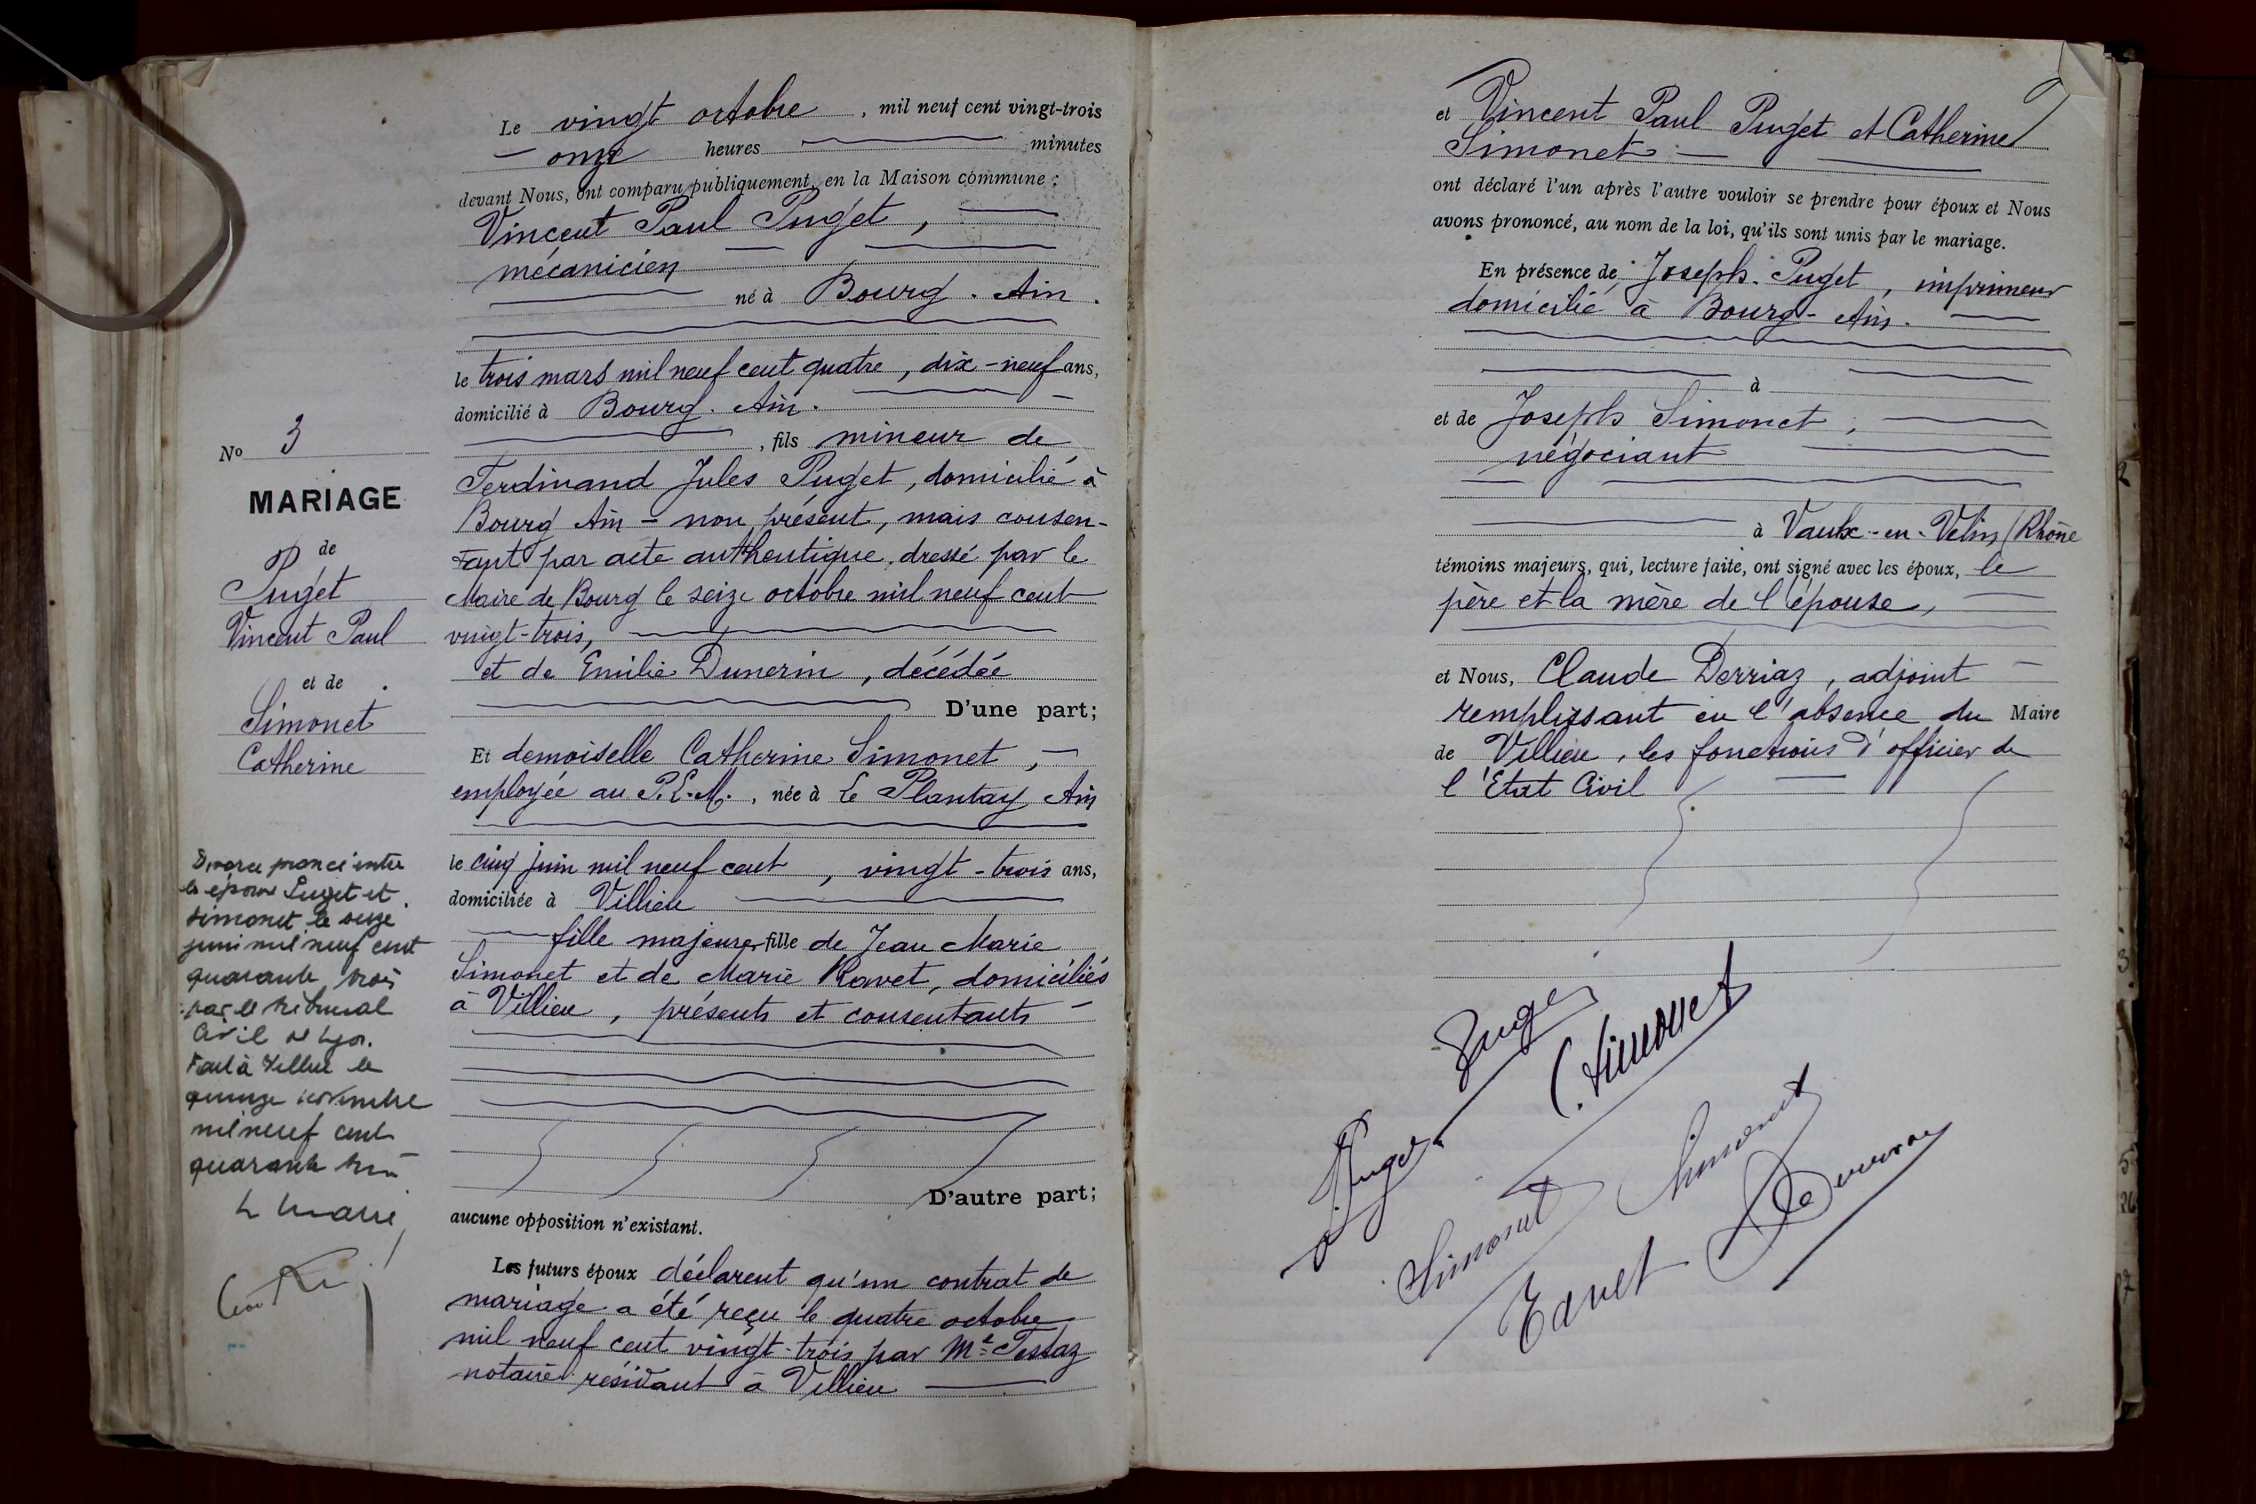 Le vingt octobre, mil neuf cent vingt-trois
onze heures minutes
devant Nous, ont comparu publiquement, en la Maison commune :
Vincent Paul Puget,
mécanicien
né à Bourg. Ain.
le trois mars mil neuf cent quatre, dix-neuf ans,
domicilié à Bourg. Ain.
, fils mineur de
Ferdinand Jules Puget, domicilié à
Bourg Ain - non présent, mais consen-
tant par acte authentique dressé par le
Maire de Bourg le seize octobre mil neuf cent
vingt-trois,
et de Emilie Dunerin, décédée
D'une part;
Et demoiselle Catherine Simonet,
employée au P.L.M., née à Le Plantay Ain
le cinq juin mil neuf cent, vingt-trois ans,
domiciliée à Villieu
fille majeure fille de Jean Marie
Simonet et de Marie Ravet, domiciliés
à Villieu, présents et consentants
D'autre part;
aucune opposition n'existant.
Les futurs époux déclarent qu'un contrat de
mariage a été reçu le quatre octobre
mil neuf cent vingt-trois par Me Testaz
notaire résidant à Villieu
No 3
MARIAGE
de
Puget
Vincent Paul
et de
Simonet
Catherine
Divorce prononcé entre
les époux Puget et
Simonet le seize
juin mil neuf cent
quarante trois
par le tribunal
Civil de Lyon.
Fait à Villieu le
quinze novembre
mil neuf cent
quarante trois
Le Maire,
et Vincent Paul Puget et Catherine
Simonet
ont déclaré l'un après l'autre vouloir se prendre pour époux et Nous
avons prononcé, au nom de la loi, qu'ils sont unis par le mariage.
En présence de Joseph Puget, imprimeur
domicilié à Bourg - Ain.
à
et de Joseph Simonet,
négociant
à Vaulx-en-Velin (Rhône
témoins majeurs, qui, lecture faite, ont signé avec les époux, le
père et la mère de l'épouse,
et Nous, Claude Derriaz, adjoint
remplissant en l'absence du Maire
de Villieu, les fonctions d'officier de
l'Etat Civil
Puget
C. Simonet
Puget
Simonet
Simonet
Ravet